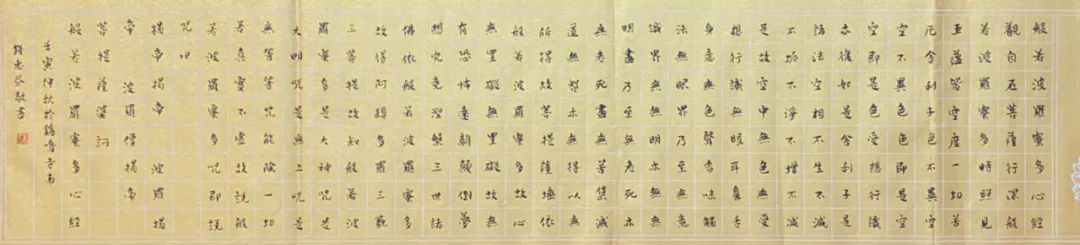 般若波羅蜜多心經
觀自在菩薩行深般
若波羅蜜多時照見
五蘊皆空度一切苦
厄舍利子色不異空
空不異色色即是空
空即是色受想行識
亦復如是舍利子是
諸法空相不生不滅
不垢不淨不增不減
是故空中無色無受
想行識無眼耳鼻舌
身意無色聲香味觸
法無眼界乃至無意
識界無無明亦無無
明盡乃至無老死亦
無老死盡無苦集滅
道無智亦無得以無
所得故菩提薩埵依
般若波羅蜜多故心
無罣礙無罣礙故無
有恐怖遠離顛倒夢
想究竟涅槃三世諸
佛依般若波羅蜜多
故得阿耨多羅三藐
三菩提故知般若波
羅蜜多是大神咒是
大明咒是無上咒是
無等等咒能除一切
苦真實不虛故說般
若波羅蜜多咒即說
咒曰
揭帝揭帝 波羅揭
帝 波羅僧揭帝
菩提薩婆訶
般若波羅蜜多心經
壬寅仲秋於寺南
敬書